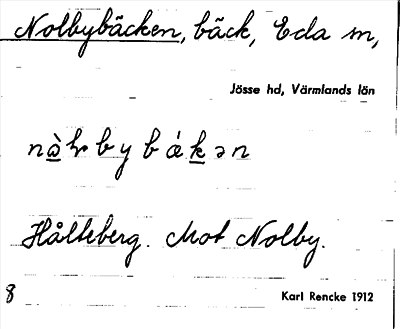 Nolbybäcken, bäck, Eda sn,
Jösse hd, Värmlands län
Hålteberg. Mot Nolby.
8
Karl Rencke 1912